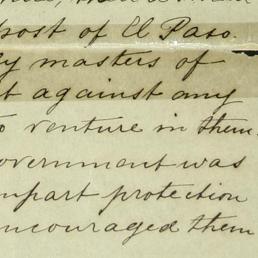 post of El Paso.
masters of
against any
to venture in them.
overnment was
mpart protection
ncouraged them